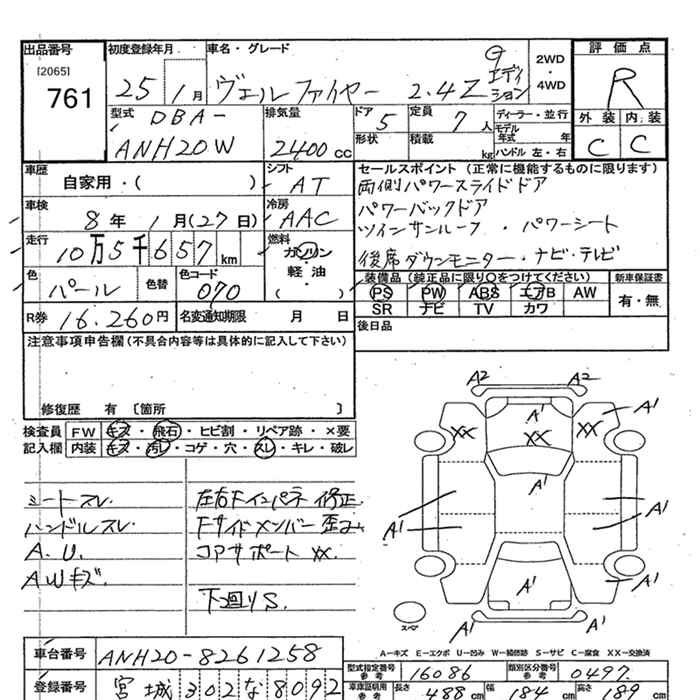 出品番号
[2065]
761
初度登録年月
25 1月
車名・グレード
ヴェルファイヤー 2.4Z Gエディション
2WD
・
4WD
評価点
R
外装 内装
C C
型式
DBA-
ANH20W
排気量
2400cc
ドア
5
定員
7人
形状
積載
kg
ディーラー・並行
モデル年式 年
ハンドル 左・右
車歴
自家用・( )
シフト
AT
車検
8年 1月(27日)
冷房
AAC
走行
10万5千657km
燃料
ガソリン
・
軽油
・
( )
色
パール
色替
色コード
070
R券 16.260円
名変通知期限 月 日
セールスポイント (正常に機能するものに限ります)
両側パワースライドドア
パワーバックドア
ツインサンルーフ ・ パワーシート
後席ダウンモニター・ナビ・テレビ
装備品(純正品に限り○をつけてください)
PS PW ABS エアB AW
SR ナビ TV カワ
新車保証書
有・無
後日品
注意事項申告欄(不具合内容等は具体的に記入して下さい)
修復歴 有 〔箇所 〕
検査員 FW キズ・飛石・ヒビ割・リペア跡・×要
記入欄 内装 キズ・汚レ・コゲ・穴・スレ・キレ・破レ
シートスレ
ハンドルスレ
A.U.
AWキズ
左右Fインパネ修正
Fサイドメンバー歪み
コアサポートXX
下回りS.
A2 A2
A1 A1
XX XX XX
A1
A1 A1
A1
A1 A1
A1 A1
スペア
A-キズ E-エクボ U-凹み W-補修跡 S-サビ C-腐食 XX-交換済
車台番号 ANH20-8261258
登録番号 宮城302な8092
型式指定番号
参考
16086
類別区分番号
参考
0497
車庫証明用
参考
長さ 488cm 幅 184cm 高さ 189cm